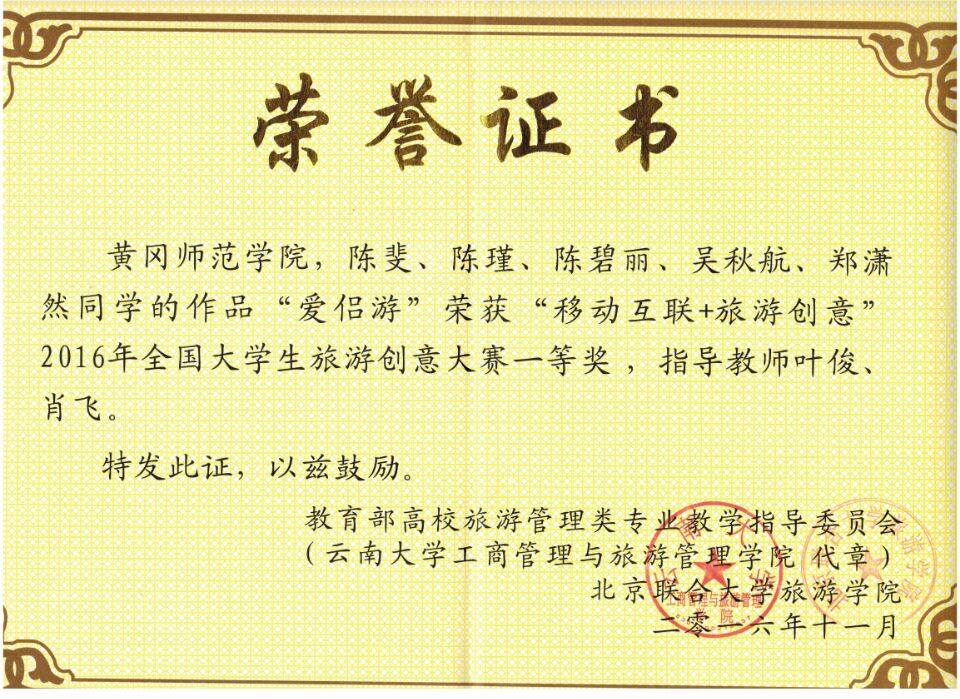 荣誉证书
黄冈师范学院，陈斐、陈瑾、陈碧丽、吴秋航、郑潇
然同学的作品“爱侣游”荣获“移动互联+旅游创意”
2016年全国大学生旅游创意大赛一等奖，指导教师叶俊、
肖飞。
特发此证，以兹鼓励。
教育部高校旅游管理类专业教学指导委员会
（云南大学工商管理与旅游管理学院（代章）
北京联合大学旅游学院
二零一六年十一月
云南大学
工商管理与旅游管理
学院
北京联合大学旅游学院